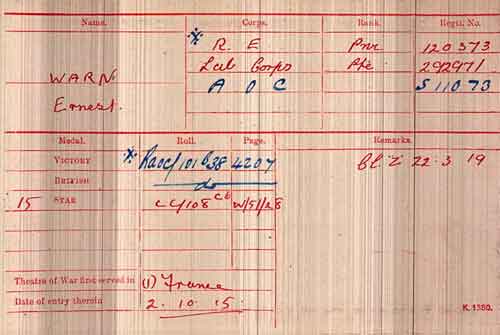 Name. Corps. Rank. Regtl. No.
* R. E Pnr 120373
WARN Lab Corps Pte 292971
Ernest. A O C S 11073
Medal. Roll. Page. Remarks.
VICTORY * RAOC/101B38 4207 Cl. Z 22.3 19
BRITISH do
15 STAR CC/108 C6 W/51/28
Theatre of War first served in (1) France
Date of entry therein 2. 10. 15.
K. 1380.